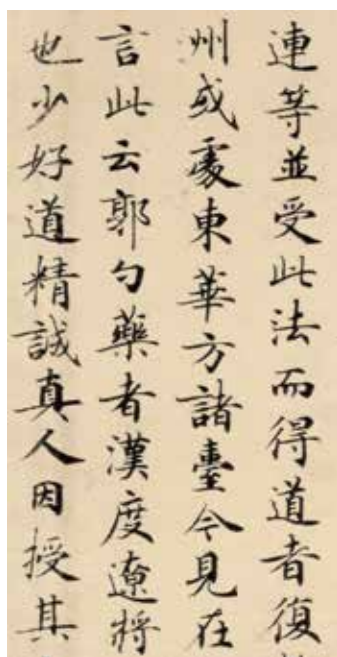 連等並受此法而得道者復
州或處東華方諸臺今見在
言此云郭勺藥者漢度遼將
也少好道精誠真人因授其